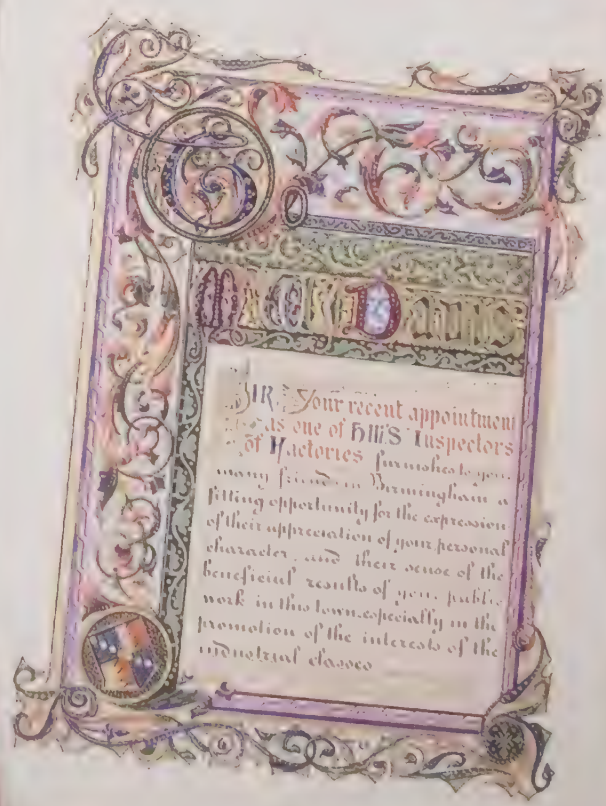 To
Mr W. J. Davis
SIR, Your recent appointment
as one of H.M.'S Inspectors
of Factories furnishes to your
many friends in Birmingham a
fitting opportunity for the expression
of their appreciation of your personal
character, and their sense of the
beneficial results of your public
work in this town, especially in the
promotion of the interests of the
industrial classes